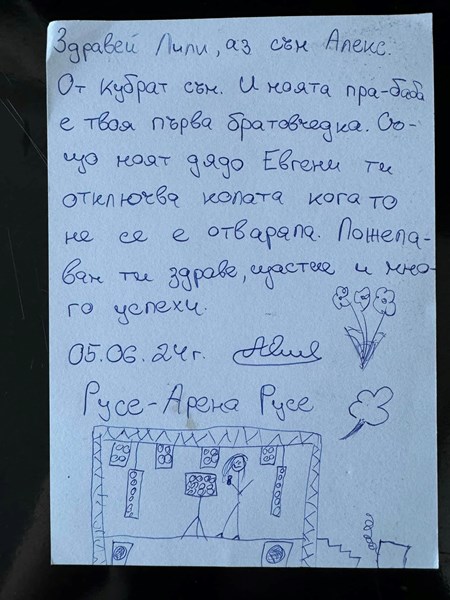 Здравей Лили, аз съм Алекс.
От Кубрат съм. И моята пра-баба
е твоя първа братовчедка. Съ-
що моят дядо Евгени ти
отключва колата когато
не се е отваряла. Пожела-
вам ти здраве, щастие и мно-
го успехи.
05.06.24г.
Русе-Арена Русе